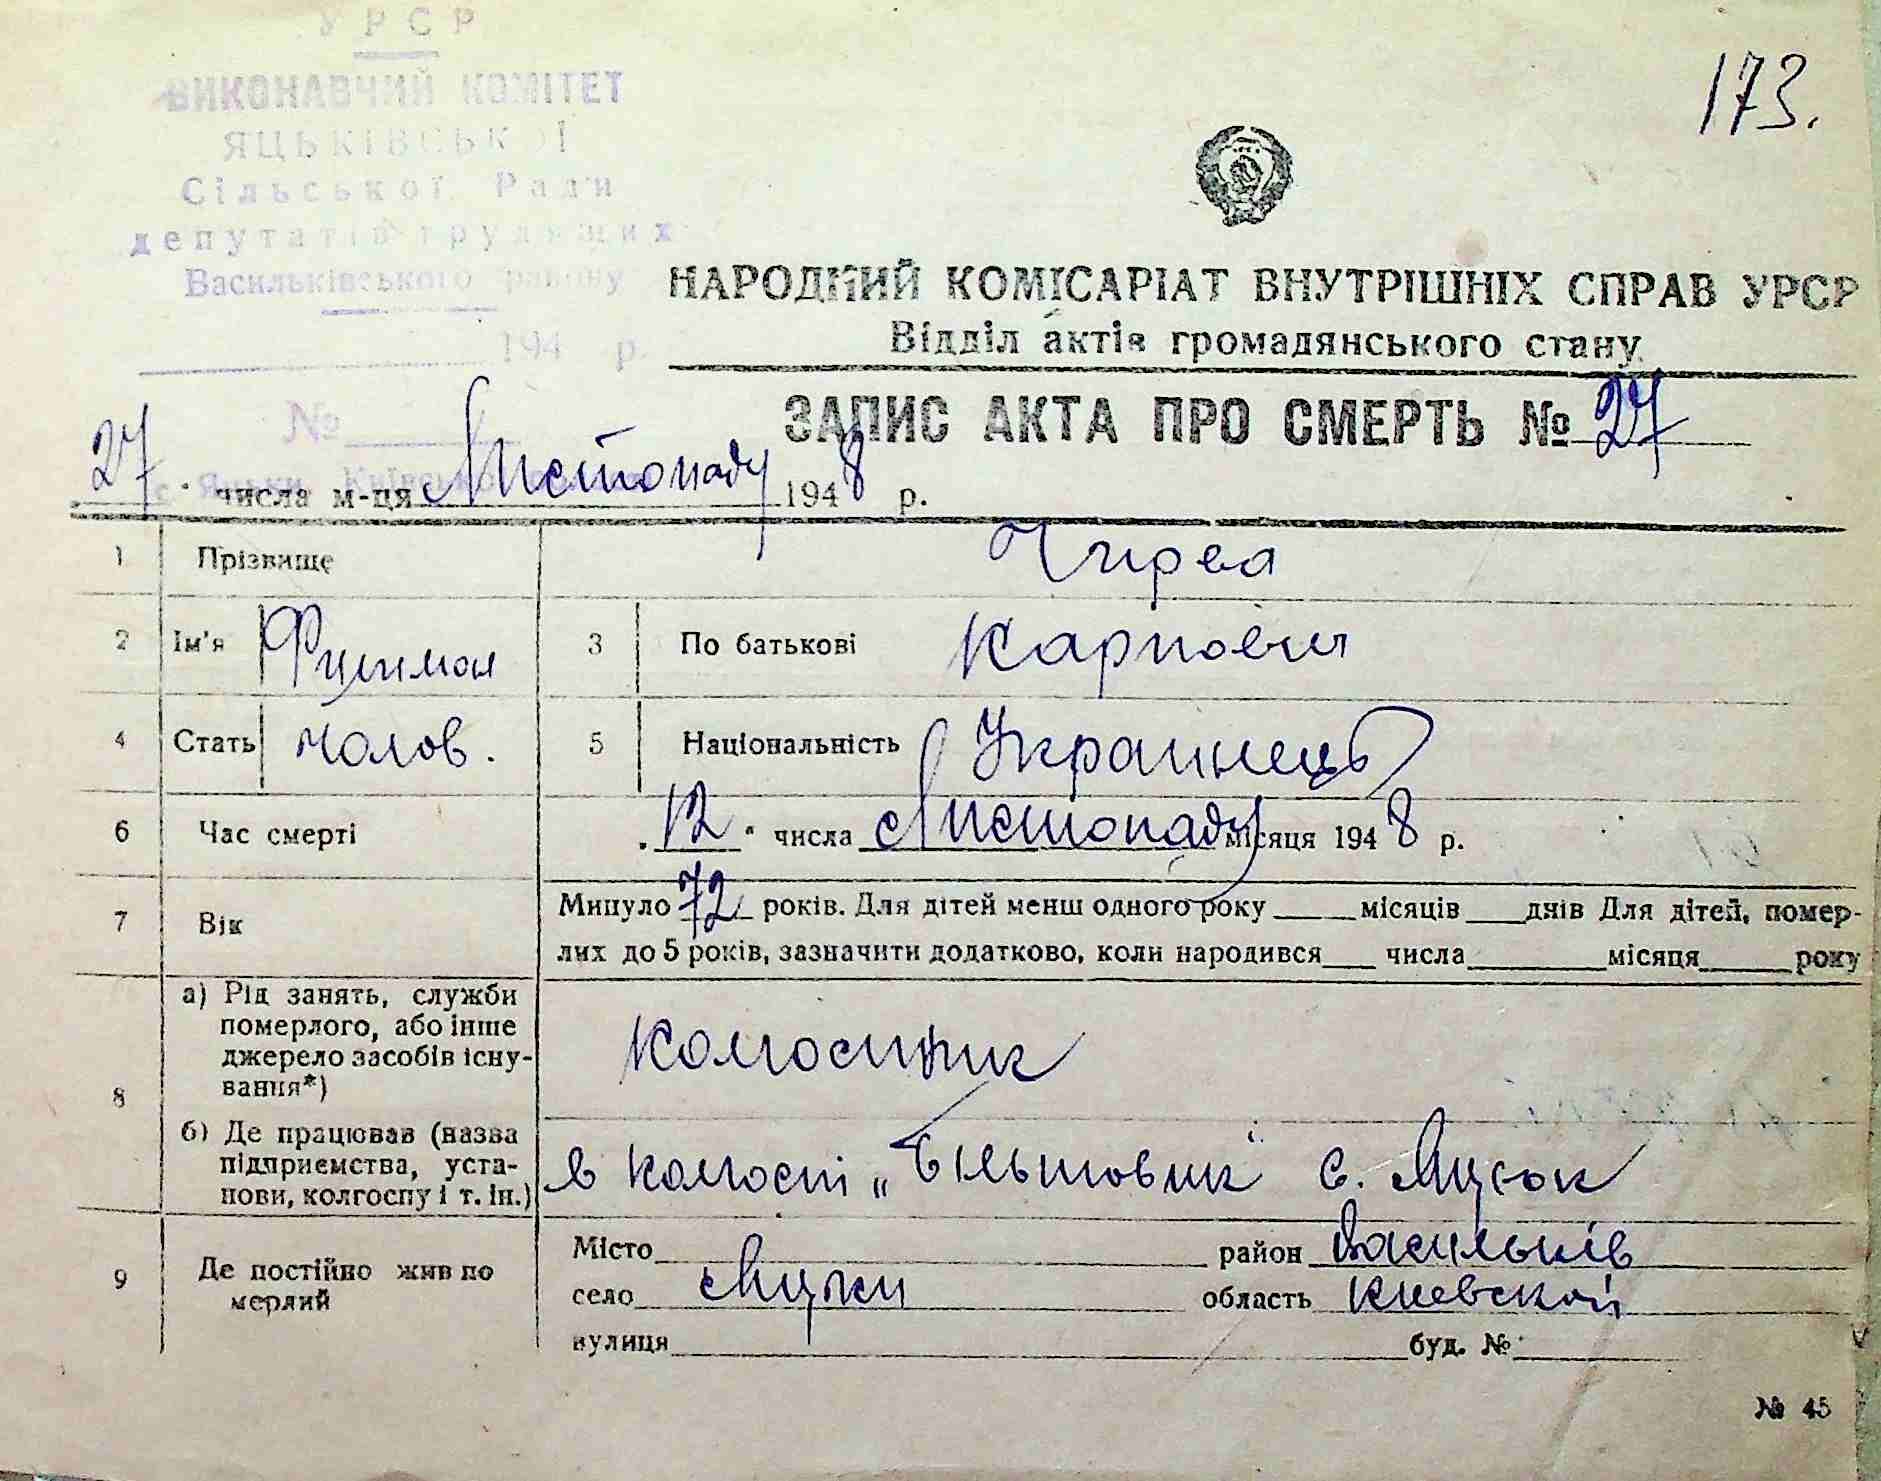 УРСР
ВИКОНАВЧИЙ КОМІТЕТ
ЯЦЬКІВСЬКОЇ
Сільської Ради
депутатів трудящих
Васильківського району
194 р.
№
с. Яцьки, Київської
173.
НАРОДНИЙ КОМІСАРІАТ ВНУТРІШНІХ СПРАВ УРСР
Відділ актів громадянського стану
ЗАПИС АКТА ПРО СМЕРТЬ № 27
27 " числа м-ця Листопаду 1948 р.
1 Прізвище Чирва
2 Ім'я 3 По батькові Карпович
4 Стать чолов. 5 Національність Украинець
6 Час смерті "12" числа Листопаду місяця 1948 р.
7 Вік Минуло 72 років. Для дітей менш одного року місяців днів Для дітей, помер-
лих до 5 років, зазначити додатково, коли народився числа місяця року
8 а) Рід занять, служби
померлого, або інше
джерело засобів існу-
вання*)
Колгоспник
б) Де працював (назва
підприємства, уста-
нови, колгоспу і т. ін.)
в колгоспі „Більшовик" с. Яцьок
9 Де постійно жив по
мерлий
Місто район Васильків
село Яцьки область Киевской
вулиця буд. №
№ 45